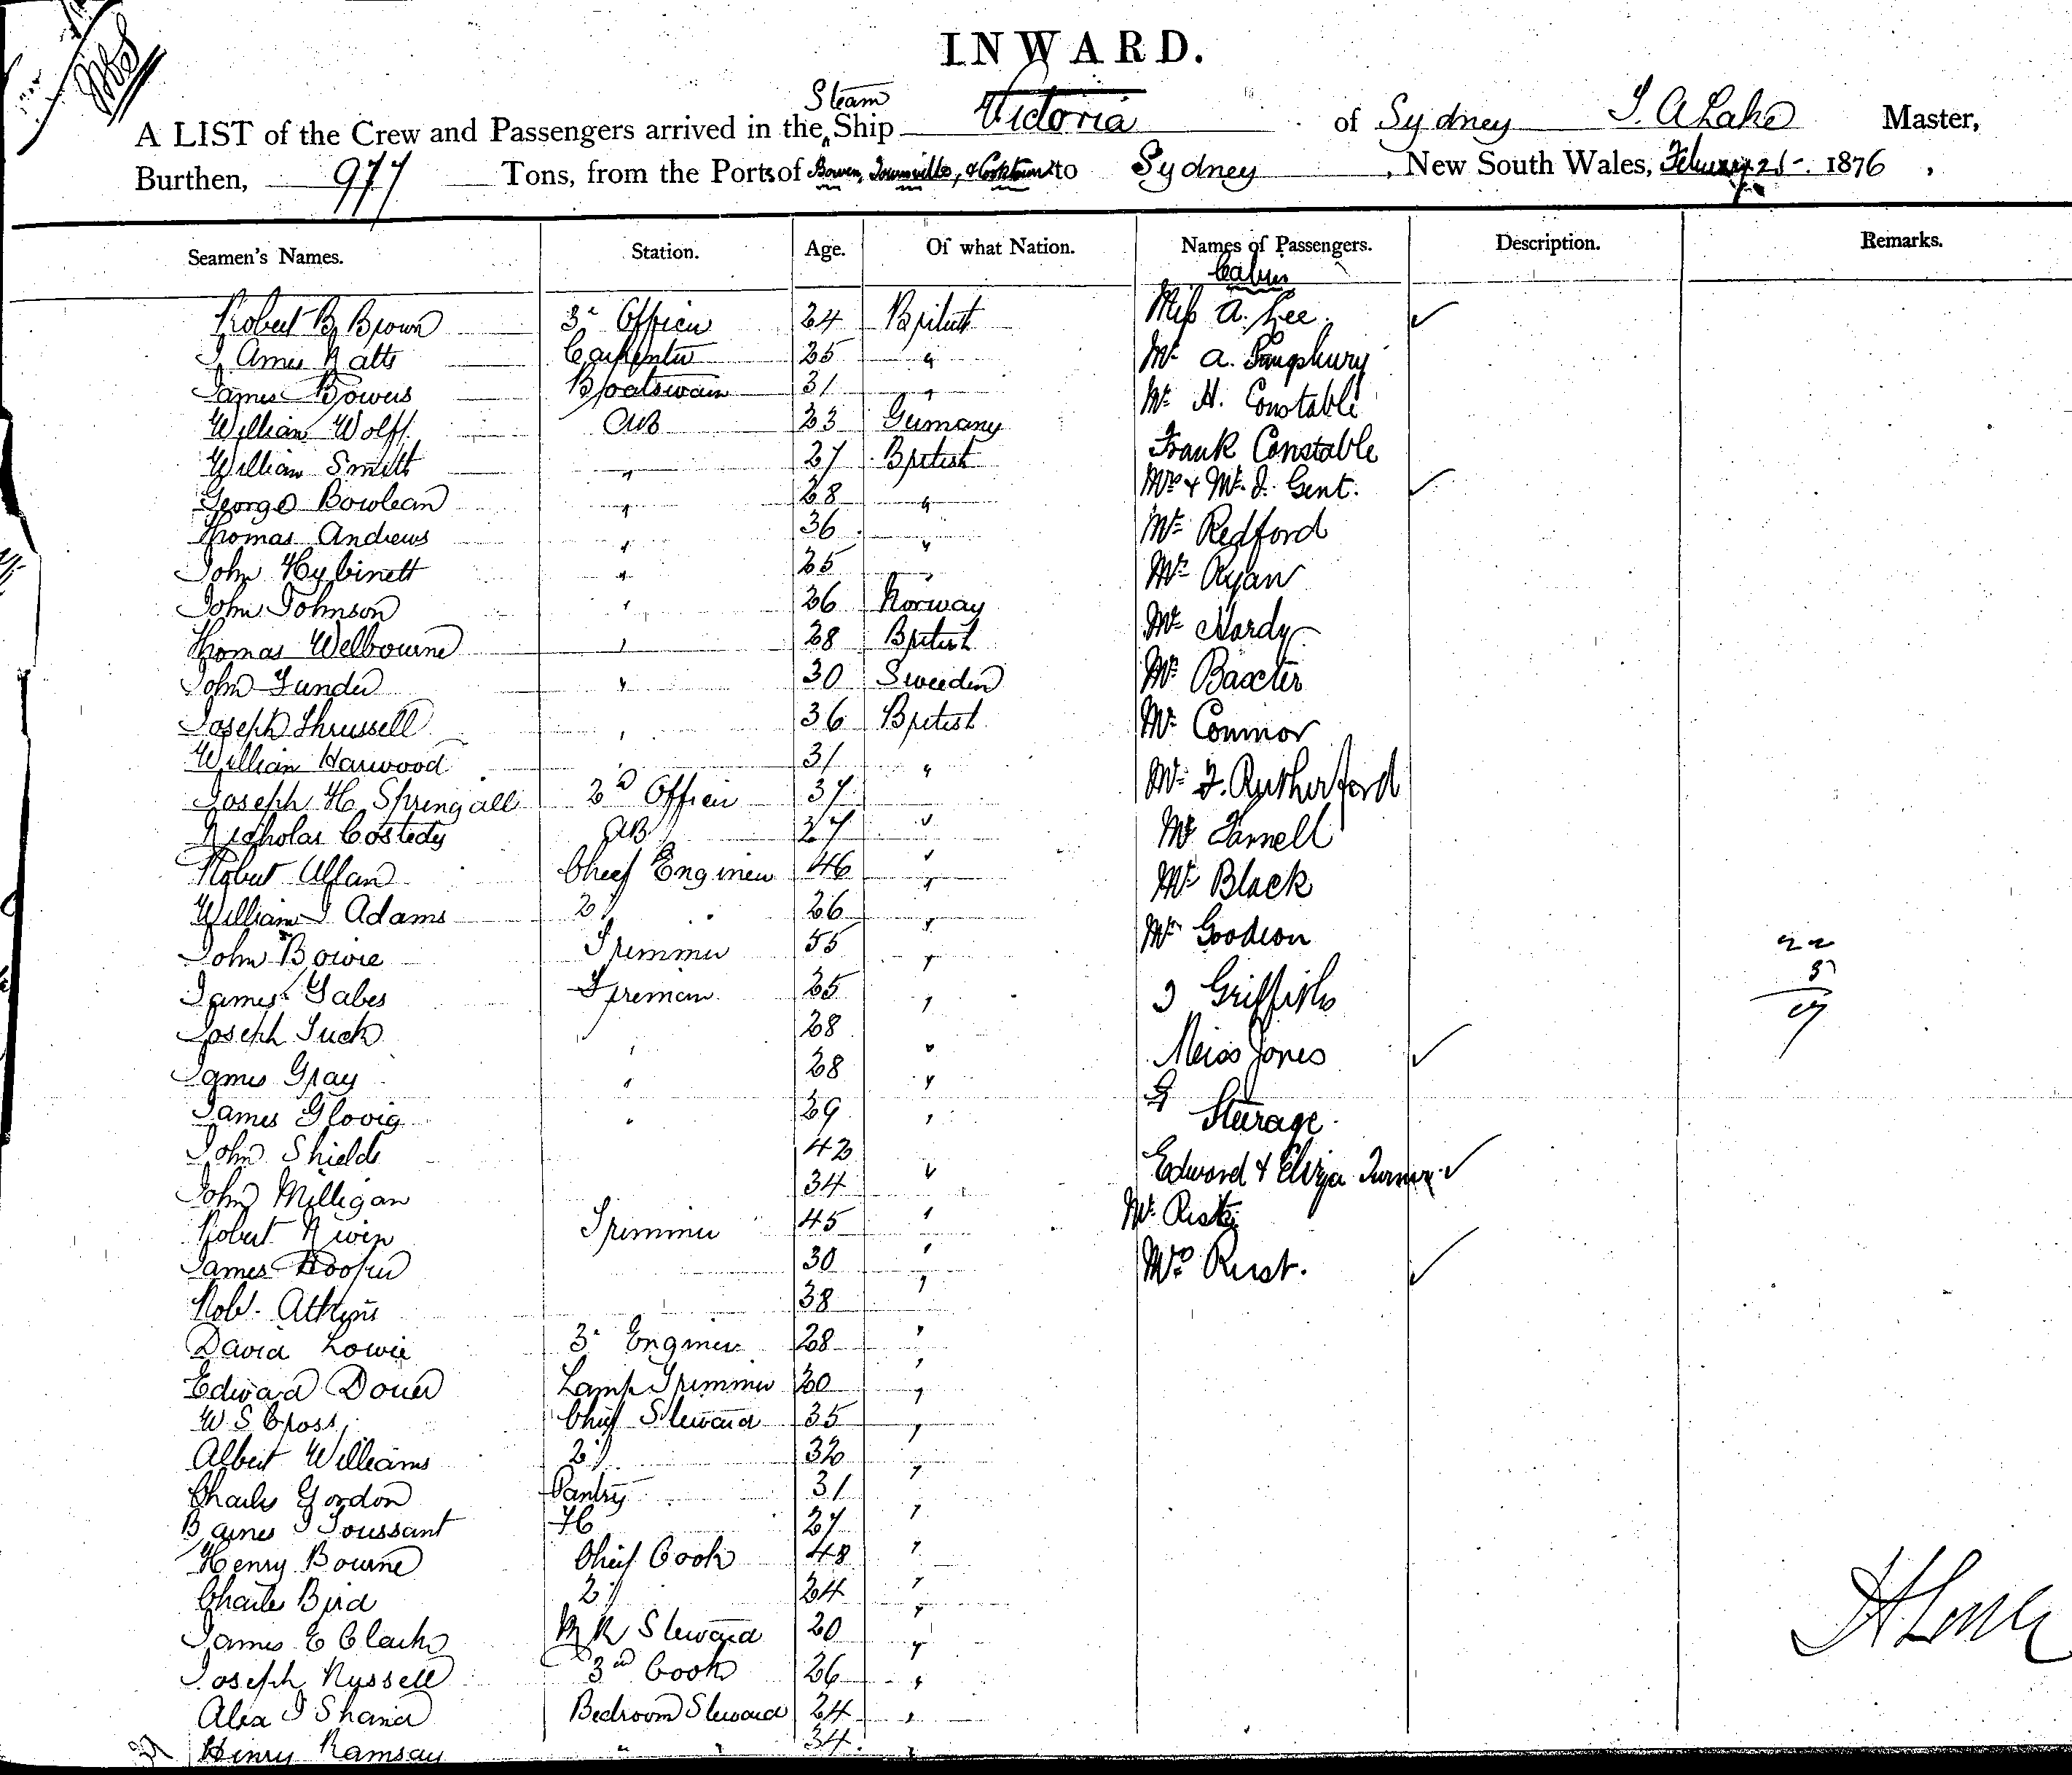 INWARD.
Steam
A LIST of the Crew and Passengers arrived in the Ship Victoria of Sydney J. A Lake Master,
Burthen, 977 Tons, from the Ports of Bowen, Townsville, & Cooktown to Sydney, New South Wales, February 25 1876,
Seamen's Names. Station. Age. Of what Nation. Names of Passengers. Description. Remarks.
Cabin
Robert B Brown 3 Officer 24 British Miss A. Lee. ✓
James Watts Carpenter 25 " Mr A.
James Bowers Boatswain 31 " Mr H. Constable
William Wolff AB 23 Germany Frank Constable
William Smith " 27 British
George Bowlean " 28 " Mrs & Mr J. Gent. ✓
Thomas Andrews " 36 " Mr Redford
John Hybinett " 25 " Mr Ryan
John Johnson " 26 Norway Mr Hardy
Thomas Welbourne " 28 British
John " 30 Sweeden Mr Baxter
Joseph Thrussell " 36 British Mr Connor
William Harwood " 31 "
Joseph H Springall 2nd Officer 37 " Mr J. Rutherford
Nicholas Costedy AB 27 " Mr Farnell
Robert Allan Chief Engineer 46 " Mr Black
William J Adams 2 " 26 " Mr
John Bowie Trimmer 55 "
James Fireman 25 " J Griffiths
Joseph Tuck " 28 "
James Gray " 28 " Miss Jones ✓
James " 29 " Steerage
John Shields 42 " Edward & Eliza Turner ✓
John Milligan 34 "
Robert Niven Trimmer 45 " Mr
James Hooper 30 " Mrs Rust. ✓
Robt. Atkins 38 "
David Lowie 3 Engineer 28 "
Edward Dover Lamp Trimmer 20 "
W S Cross Chief Steward 35 "
Albert Williams 2 " 32 "
Charles Gordon Pantry 31 "
James J Toussant 27 "
Henry Bourne Chief Cook 48 "
Charles Bird 2 " 24 "
James E Clark Steward 20 "
Joseph Russell 3rd Cook 26 "
Alex J Bedroom Steward 24 "
Henry Ramsay " " 34 "
22
5